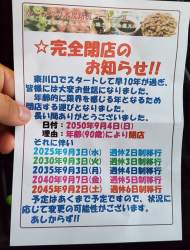 ☆完全閉店の
お知らせ!!
東川口でスタートして早10年が過ぎ、
皆様には大変お世話になりました。
年齢的に限界を感じる年となるため
閉店する運びとなりました。
長い間ありがとうございました。
日付：2050年9月4日(日)
理由：年齢(90歳)により閉店
それに伴い
2025年9月3日(水) 週休2日制移行
2030年9月3日(火) 週休3日制移行
2035年9月3日(月) 週休4日制移行
2040年9月7日(金) 週休5日制移行
2045年9月2日(土) 週休6日制移行
予定はあくまで予定ですので、状況に
応じて変更の可能性がございます。
あしからず!!